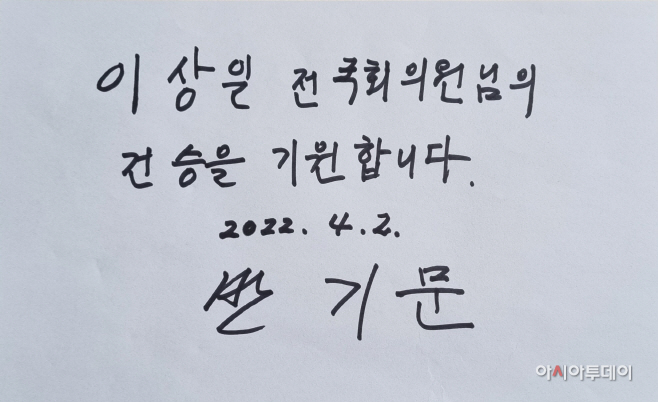 이상일 전국회의원님의
건승을 기원합니다.
2022. 4. 2.
반기문
아시아투데이